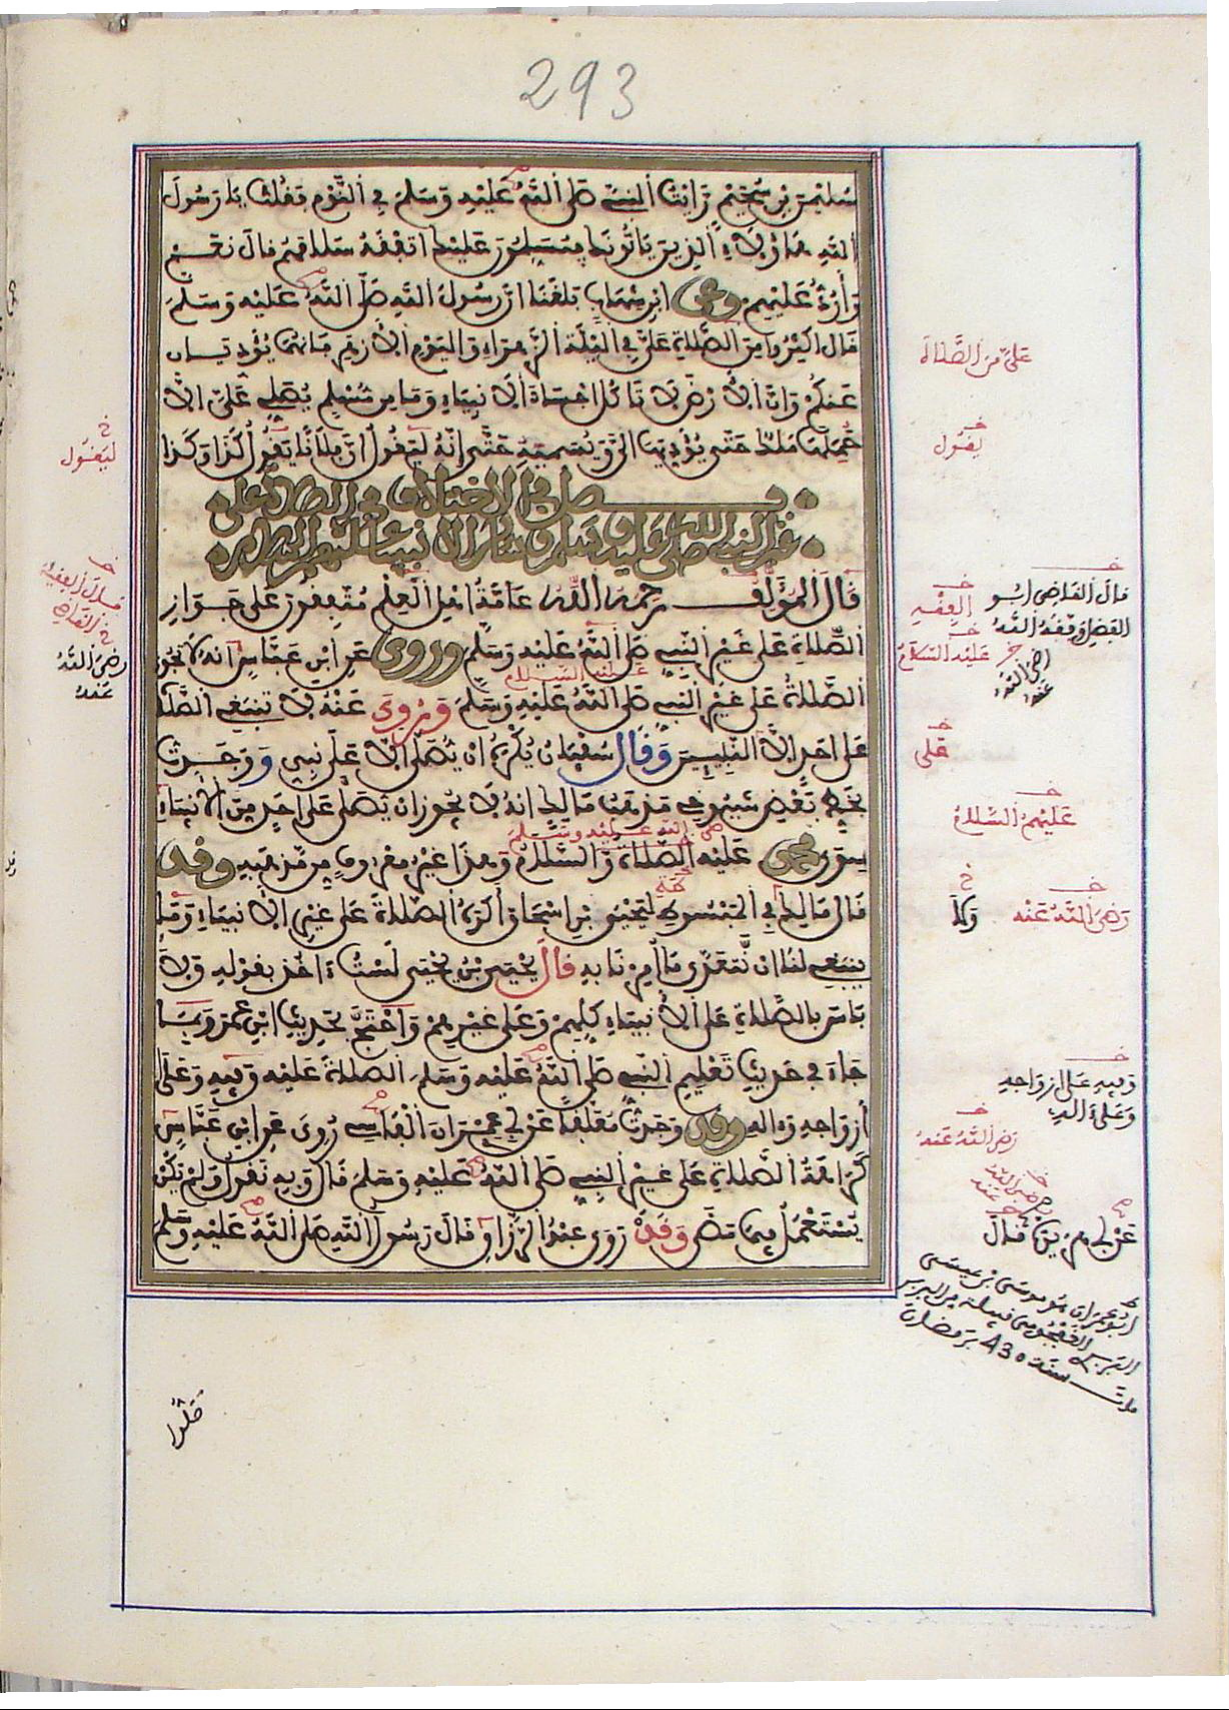 293
سليمن بن سحيم رأيت النبي صلى الله عليه وسلم في النوم فقلت يا رسول
الله هاؤلاء الذين ياتونك يسلمون عليك اتفقه سلامهم قال نعم
وأرد عليهم وعن ابن شهاب بلغنا ان رسول الله صلى الله عليه وسلم
قال اكثروا من الصلاة علي في الليلة الزهراء واليوم الأزهر فإنهما يؤديان
عنكم وان الأرض لا تاكل اجساد الأنبياء وما من مسلم يصلي علي الا
حملها ملك حتى يؤديها الي ويسميه حتى إنه ليقول ان فلانا يقول كذا وكذا
فصل في الاختلاف في الصلاة على
غير النبي صلى الله عليه وسلم وسائر الأنبياء عليهم السلام
قال المؤلف رحمه الله عامة اهل العلم متفقون على جواز
الصلاة على غير النبي صلى الله عليه وسلم وروي عن ابن عباس انه لا تجوز
الصلاة على غير النبي صلى الله عليه وسلم وروي عنه لا تنبغي الصلاة
على احد الا النبيين وقال سفيان يكره ان يصلى الا على نبي ووجدت
بخط بعض شيوخي مذهب مالك انه لا يجوز ان يصلى على احد من الأنبياء
سوى محمد عليه الصلاة والسلام وهذا غير معروف من مذهبه وقد
قال مالك في المبسوط ليحيى بن اسحاق اكره الصلاة على غير الأنبياء وما
ينبغي لنا ان نتعدى ما أمرنا به قال يحيى بن يحيى لست ءاخذ بقوله ولا
باس بالصلاة على الأنبياء كلهم وعلى غيرهم واحتج بحديث ابن عمر وبما
جاء في حديث تعليم النبي صلى الله عليه وسلم الصلاة عليه وفيه وعلى
أزواجه وءاله وقد وجدت معلقا عن أبي عمران الفاسي روى عن ابن عباس
كراهة الصلاة على غير النبي صلى الله عليه وسلم قال وبه نقول ولم يكن
يستعمل فيما مضى وقد روى عبد الرزاق قال رسول الله صلى الله عليه وسلم
علي من الصلاة
يقول
ليقول
قال القاضي ابو
الفضل وفقه الله
الفقيه
عليه السلام
رضي الله
عنه
رضي الله
عنه
على
عليهم السلام
رضي الله عنه
وءاله
وفيه على ازواجه
وعلى ءاله
رضي الله عنه
ابو عمران هو موسى بن عيسى
سنة 430